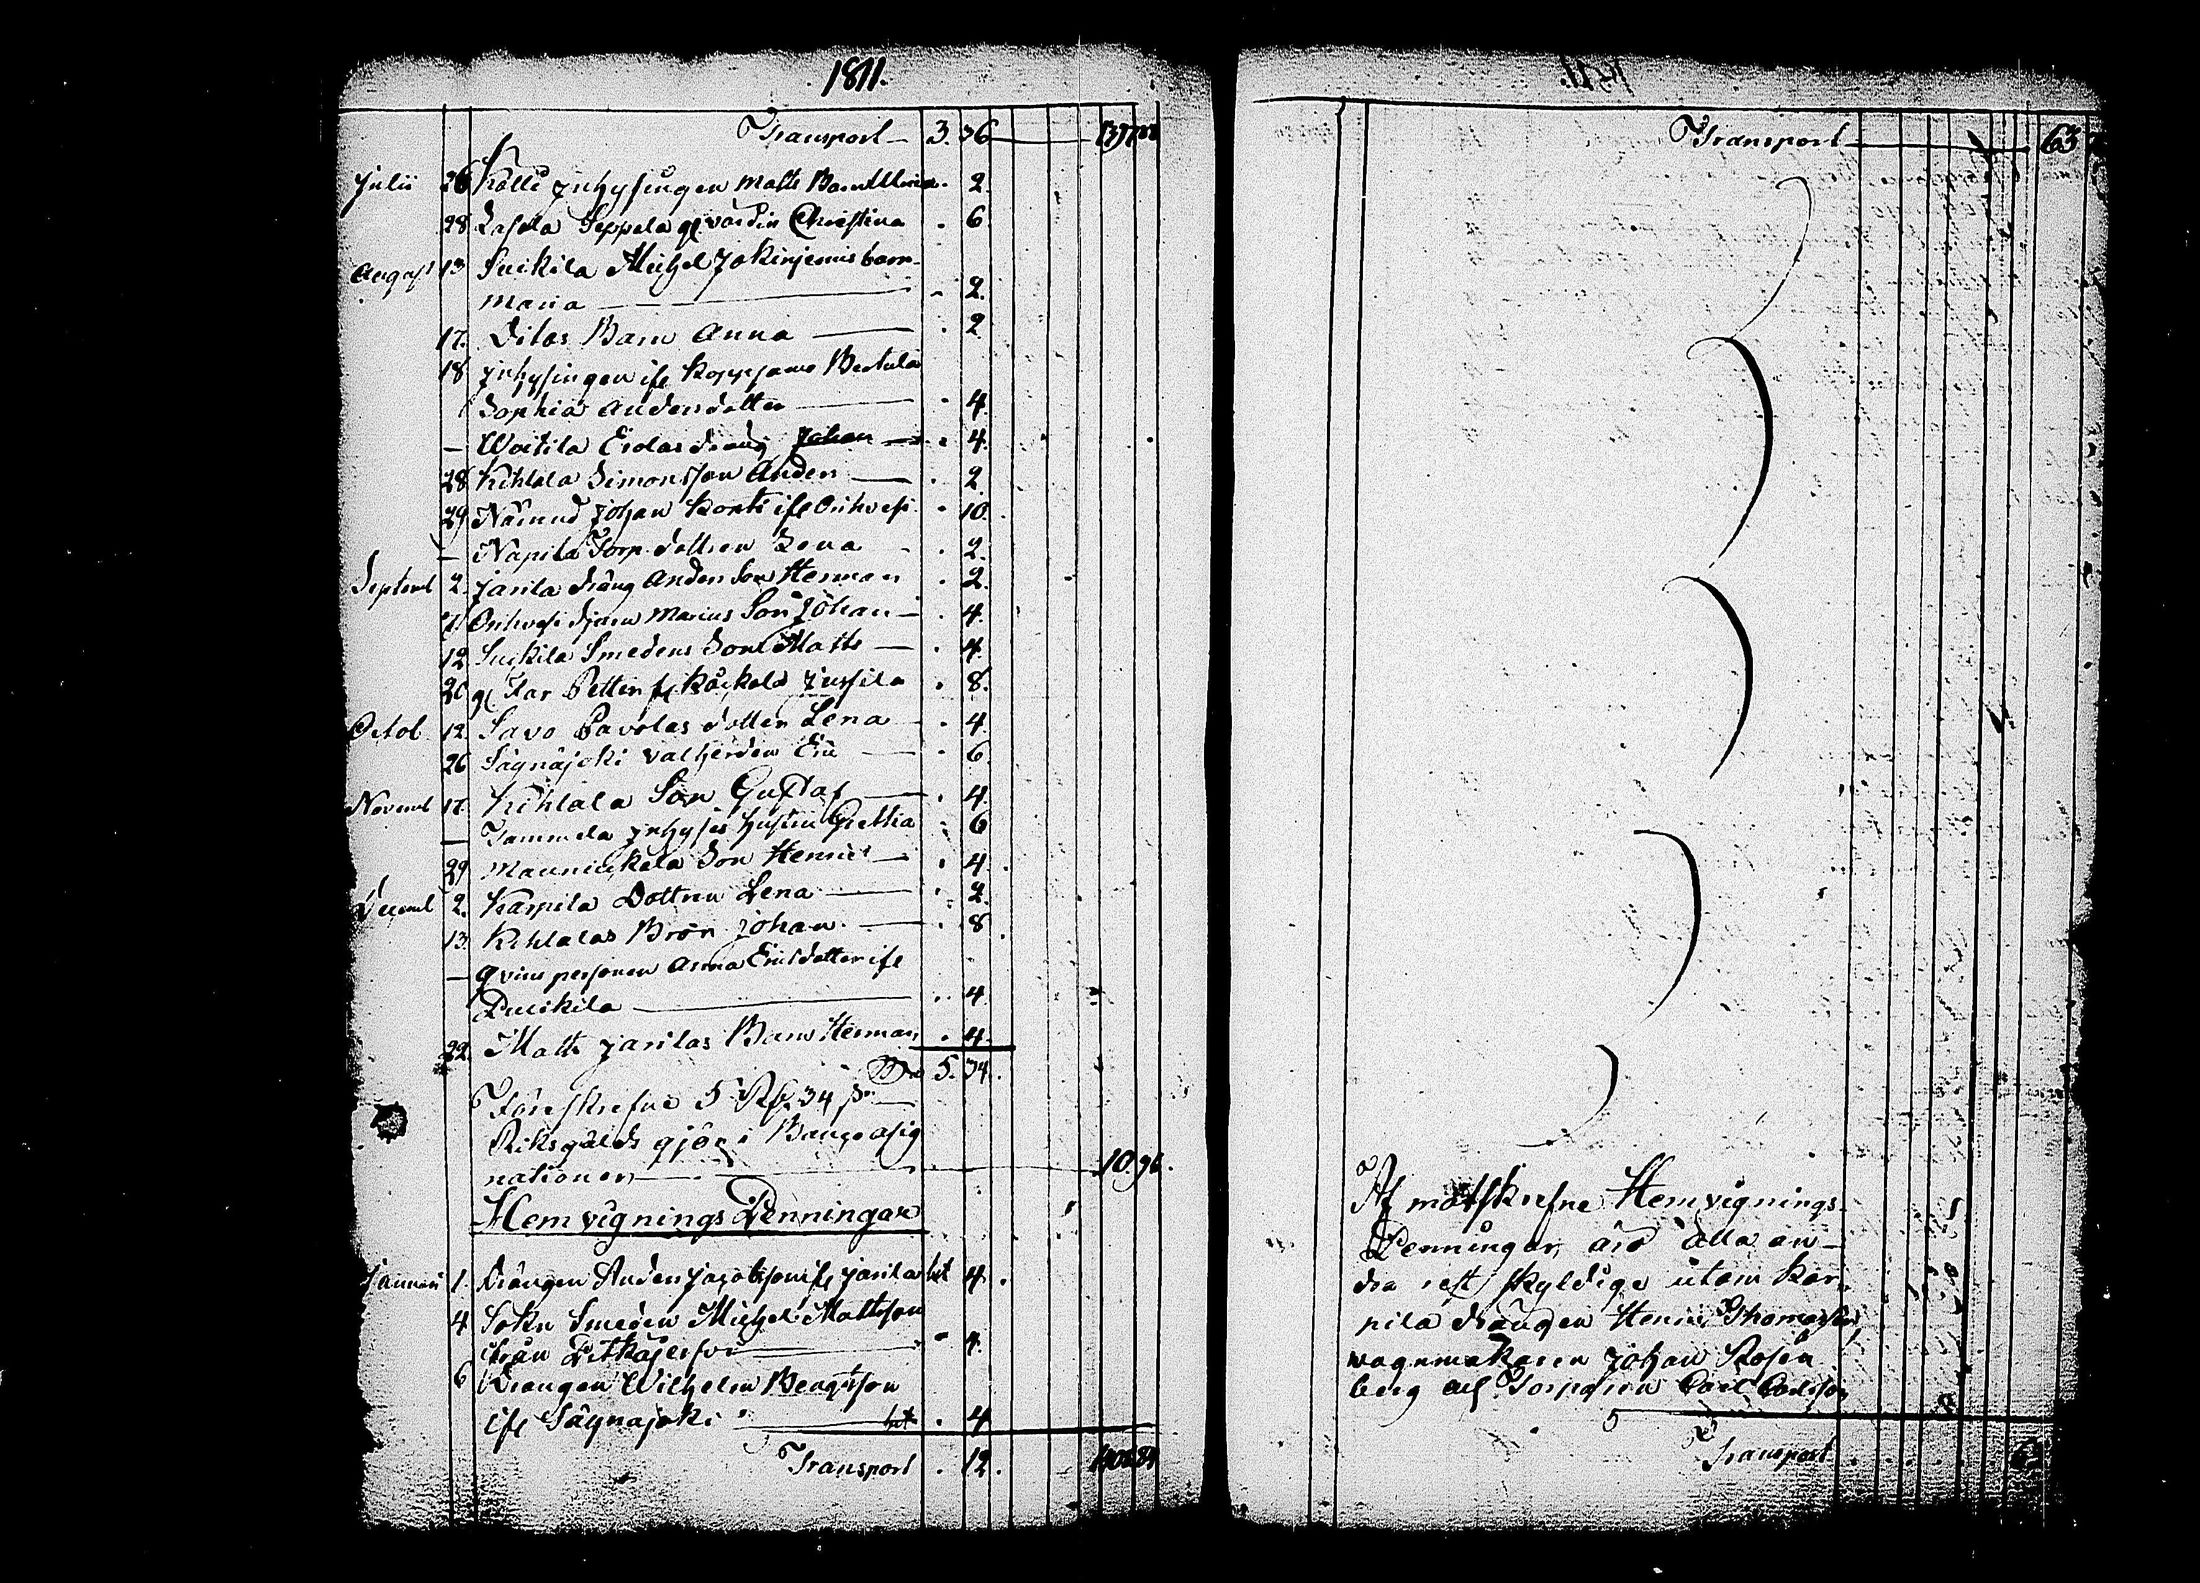 1811.
Transport — 3. 36
Julii 26 Kålli Inhysingen Matts Barn Ulrica . 2.
28 Lassila Seppälä gl värdin Christina . 6
August 13 Suikila Michel Jokinjemis barn
Maria — . 2.
17. Dito Barn Anna — . 2
18 Inhysingen ifr Koppsamo Bertula
Sophia Andersdotter — . 4.
— Woitila Erolas dräng Johan — . 4.
28 Kihlala Simons son Anders — . 2
29 Nämnd Johan Konti ifr Orihvesi . 10.
— Näpilä Torp dottren Lena . 2.
Septemb 2. Jarila dräng Anders Son Herman . 2.
Orihvesi Marius Son Johan — . 4.
12 Suikila Smedens Son Matts — . 4.
20 gl Far Petter fr Käckelä Jussila . 8.
Octob 12. Savo Pavolas dotter Lena — . 4
26 Sägnäjoki Vallherden Eric — . 6
Novemb 17. Kihlala Son Gustaf — . 4.
— Tammela Inhyses hustru Gretha . 6
29 Maunickela Son Henric — . 4.
Decemb 2. Karpila Dottren Lena — . 2.
13. Kihlalas Bror Johan — . 8
— Qvins personen Anna Ericsdotter ifr
Puickila — . 4
22. Matts Jarilas Barn Herman . 4.
5. 34.
Föreskrefne 5 Rd 34 s
Riksgälds gjör i Banco asig
nationer — 10.96.
Hemvignings Penningar
Januari 1. Drängen Anders Jacobsson ifr Jarila bet 4.
4 Sokn Smeden Michel Mattsson
från Pitkäjerfvi — . 4.
6 Drängen Wilhelm Bengtsson
ifr Sägnäjoki — bet . 4
Transport . 12.
Transport — 63
Af motskrefne Hemvignings
Penningar, äro alla an-
dra rest skyldige utom Kar-
pila drängen Henric Thomasson
vagnmakaren Johan Rosen
berg och Torparen Carl Carlsson
Transport